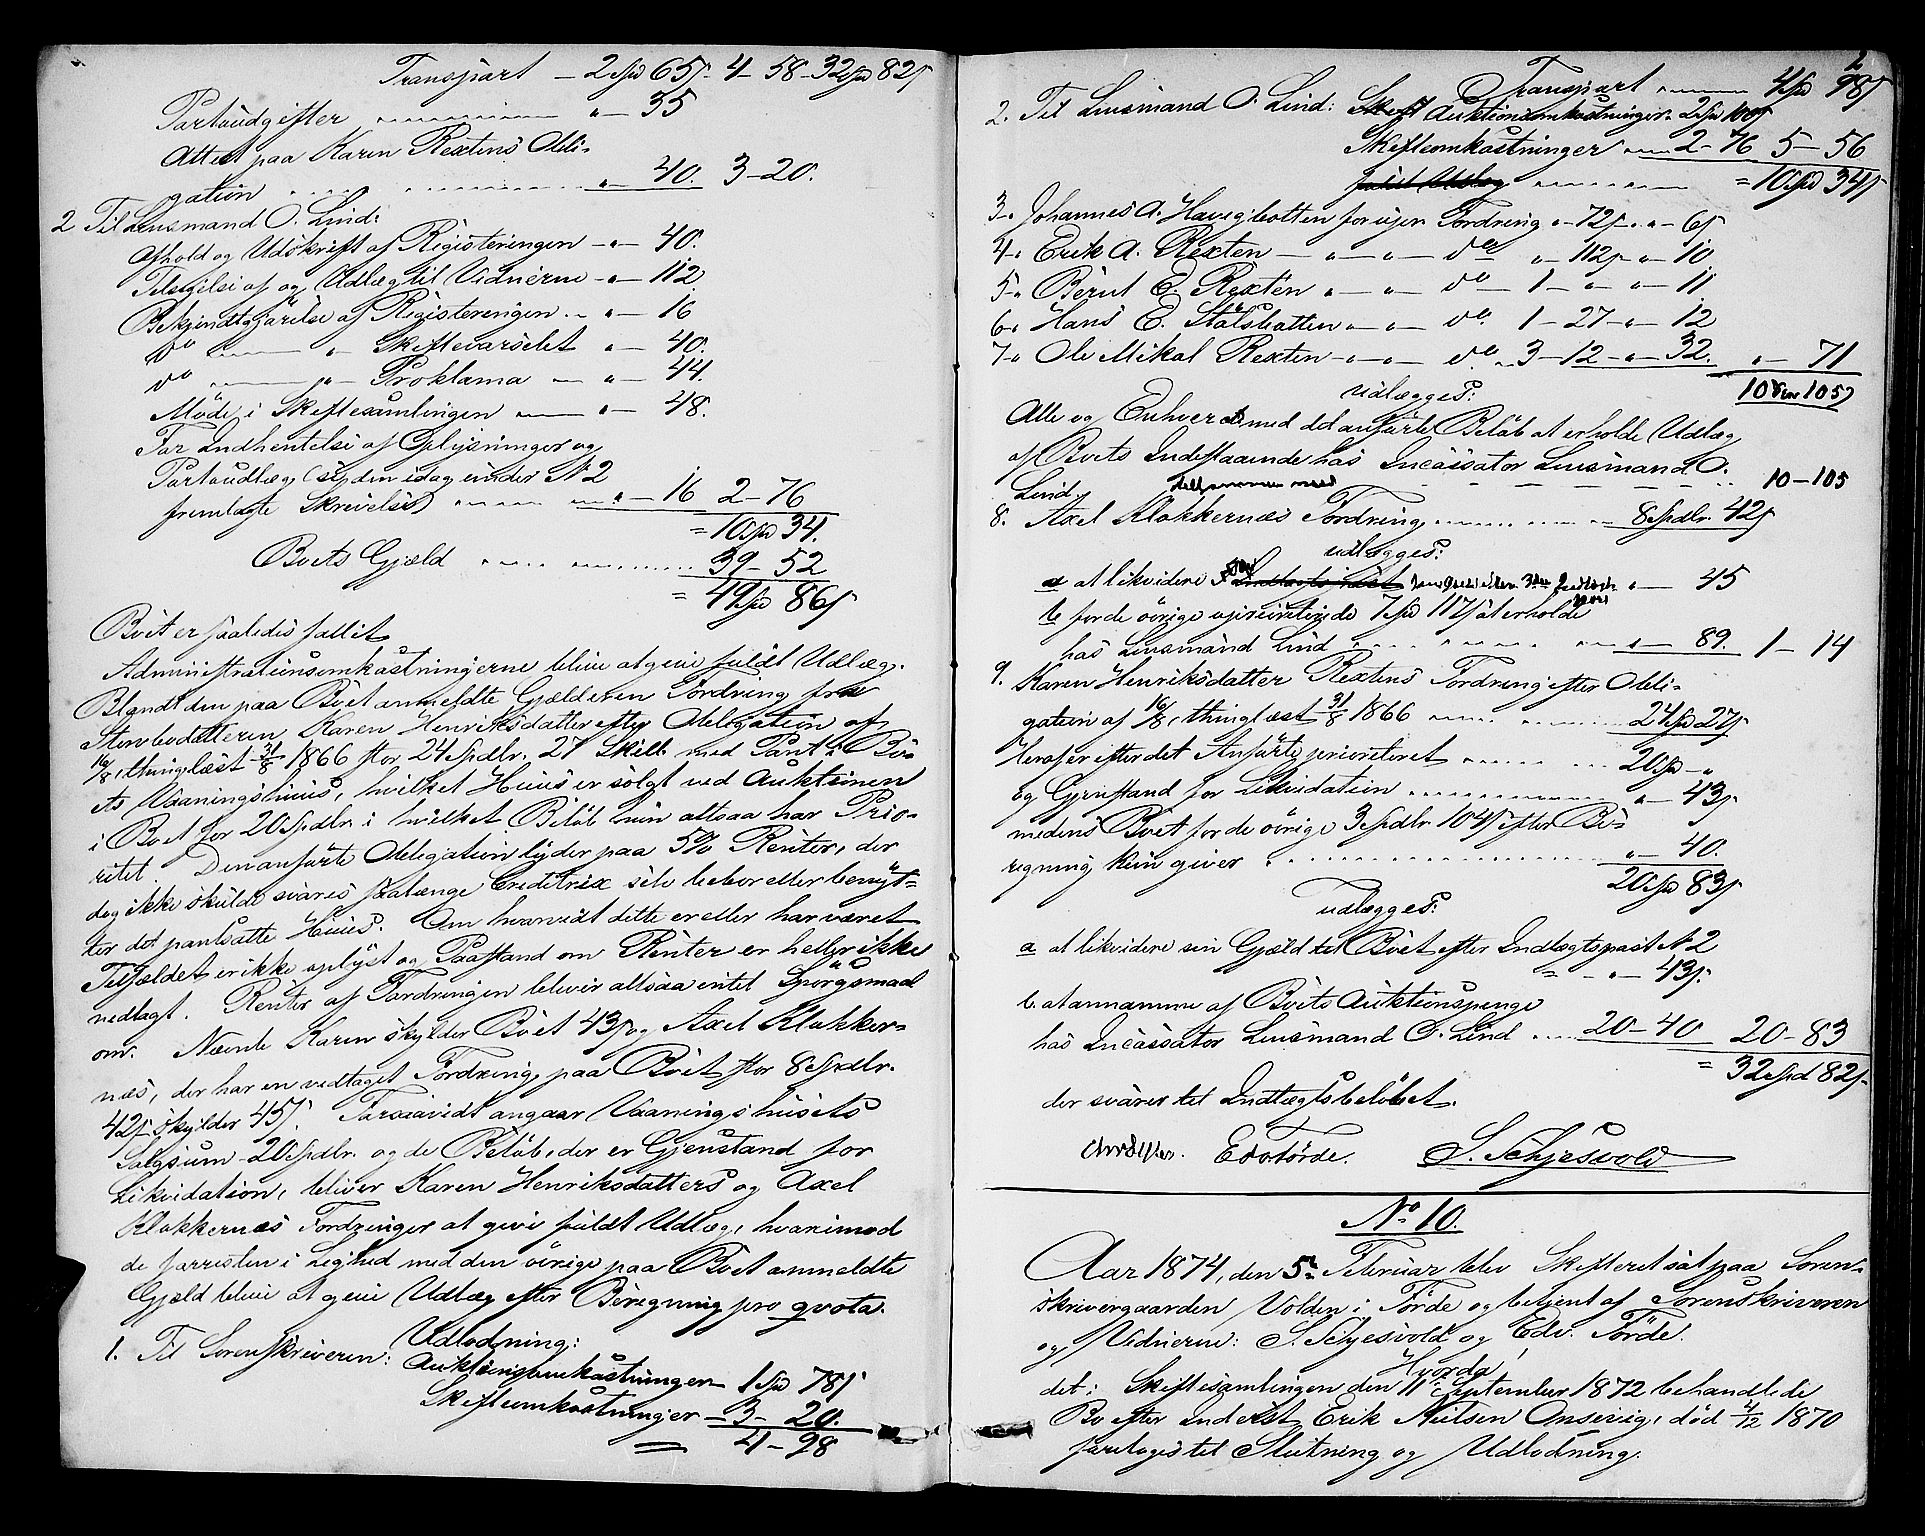 Transport – 2 Spd 65 s. 4 – 58 – 32 Spd 82 s
Portoudgifter " – 35
Attest paa Karen Rextens Obli-
gation " – 40. 3 – 20.
2 Til Lensmand O. Lind:
Afhold og Udskrift af Registeringen – " – 40.
Tilsigelse af og Udlæg til Vidnerne – " – 112
Bekjendtgjørelse af Registeringen – " – 16
do " Skiftevarselet " – 40.
do " – Proklama – " – 44.
Møde i Skiftesamlingen " – 48.
For Indhentelse af Oplysninger og
Portoudlæg (se den idag under N 2
fremlagte Skrivelse) " – 16 2 – 76
= 10 Spd 34.
Boets Gjæld 39 – 52
= 49 Spd 86 s
Boet er saaledes fallit
Administrationsomkostningerne blive at give fuldt Udlæg.
Blandt den paa Boet anmeldte Gjæld er en Fordring fra
Stervbodatteren Karen Henriksdatter efter Obligation af
16/8, thinglæst 31/8 1866 stor 24 Spdlr. 27 Skill. med Pant i Bo-
ets Vaaningshuus, hvilket Huus er solgt ved Auktionen
i Boet for 20 Spdlr. i hvilket Beløb hun altsaa har Prio-
ritet. Den anførte Obligation lyder paa 5% Renter, der
dog ikke skulde svares saalænge Creditrix selv bebor eller benyt-
ter det pantsatte Huus. Om hvorvidt dette er eller har været
Tilfældet er ikke oplyst og Paastand om Renter er heller ikke
nedlagt. Renter af Fordringen bliver altsaa intet Spørgsmaal
om. Nævnte Karen skylder Boet 43 s og Axel Klokker-
næs, der har en vedtaget Fordring paa Boet stor 8 Spdlr.
42 s skylder 45 s. Forsaavidt angaar Vaaningshusets
Salgsum 20 Spdlr. og de Beløb, der er Gjenstand for
Likvidation, bliver Karen Henriksdatters og Axel
Klokkernæs Fordringer at give fuldt Udlæg, hvorimod
de forresten i Lighed med den øvrige paa Boet anmeldte
Gjæld blive at give Udlæg efter Beregning pro qvota.
Udlodning:
1. Til Sorenskriveren: Auktionsomkostninger – 1 Spd 78 s
Skifteomkostninger – 3 – 20.
= 4 – 98
2
Transport 4 Spd 98 s
2. Til Lensmand O. Lind: Skift Auktionsomkostninger 2 Spd 100 s
Skifteomkostninger 2 – 76 5 – 56
= 10 Spd 34 s
3. Johannes A. Havigbotten for upr. Fordring " – 72 s – " – 6 s
4. Erik A. Rexten – " – " – do " 112 s – " – 10
5. Bernt E. Rexten " – " – do – 1 – " – " – 11
6. Hans E. Stålsbotten – " – " – do. 1 – 27 – " – 12
7. Ole Mikal Rexten – " – " – do. – 3 – 12 – " – 32. " – 71
10 105
udlægges:
Alle og Enhver med det anførte Beløb at erholde Udlæg
af Boets Indestaaende hos Incassator Lensmand O.
Lind, tilsammen med 10 – 105
8. Axel Klokkernæs Fordring 8 Spdlr. 42 s
udlægges:
a at likvidere " – 45
b for de øvrige uprioriterede 7 Spd 117 s at erholde
hos Lensmand Lind " – 89. 1 – 14
9. Karen Henriksdatter Rextens Fordring efter Obli-
gation af 16/8, thinglæst 31/8 1866 24 Spd 27 s.
Heraf er efter det Anførte prioriteret 20 Spd – "
og Gjenstand for Likvidation " – 43 s.
medens Boet for de øvrige 3 Spdlr 104 s efter Be-
regning kun giver " – 40.
20 Spd 83 s.
Udlægges:
a at likvidere sin Gjæld til Boet efter Indtægtspost N 2
= – " – 43 s.
b. at annamme af Boets Auktionspenge
hos Incassator Lensmand O. Lind 20 – 40 20 – 83
= 32 Spd 82 s.
der svarer til Indtægtsbeløbet.
Edv Førde. S. Schjesvold
No. 10.
Aar 1874, den 5. Februar blev Skifteret sat paa Soren-
skrivergaarden Volden i Førde og betjent af Sorenskriveren
og Vidnerne: S. Schjesvold og Edv. Førde.
Hvorda!
det i Skiftesamlingen den 11. September 1872 behandlede
Bo efter Inderst Erik Neilsen Ansevig, død 4/12 1870
foretoges til Slutning og Udlodning.